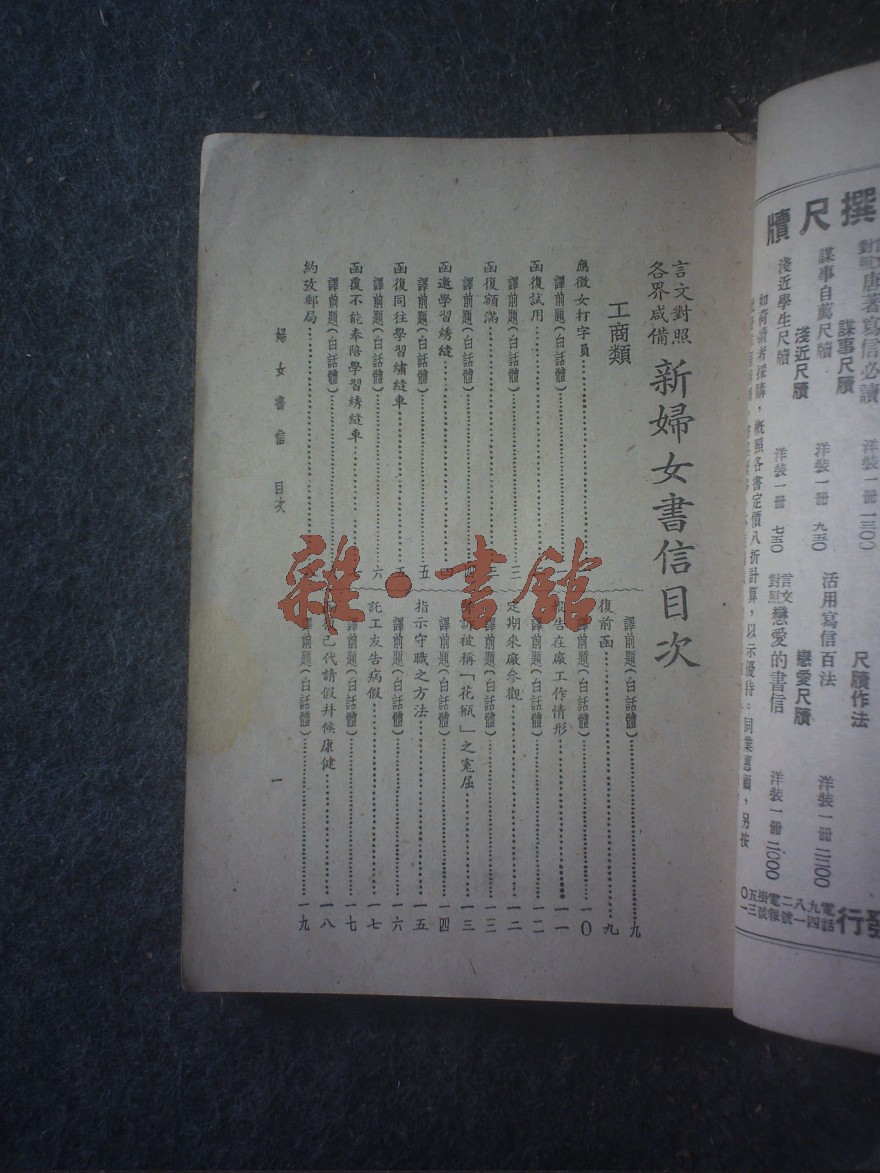 撰尺牘
言文對照唐著寫信必讀 洋裝一冊 一三〇〇
謀事尺牘
謀事自薦尺牘 洋裝一冊 九五〇
淺近尺牘
淺近學生尺牘 洋裝一冊 七五〇
尺牘作法
活用寫信百法 洋裝一冊 二二〇〇
戀愛尺牘
言文對照戀愛的書信 洋裝一冊 二〇〇〇
如荷讀者採購，概照各書定價八折計算，以示優待。同業惠顧，另按
發行
電話九四八一二號
電報掛號五三〇一
言文對照
各界咸備
新婦女書信目次
工商類
應徵女打字員
譯前題(白話體)
函復試用
譯前題(白話體)
函復額滿
譯前題(白話體)
函邀學習綉縫
譯前題(白話體) 五
函復同往學習繡縫車
譯前題(白話體) 六
函覆不能奉陪學習綉縫車
約攷郵局
譯前題(白話體) 九
復前函 九
譯前題(白話體) 一〇
報告在廠工作情形 一一
譯前題(白話體) 一二
定期來廠參觀 一二
譯前題(白話體) 一三
被稱「花瓶」之寃屈 一三
譯前題(白話體) 一四
指示守職之方法 一五
譯前題(白話體) 一六
託工友告病假 一七
譯前題(白話體) 一七
已代請假幷候康健 一八
譯前題(白話體) 一九
婦女書信 目次
一
雜·書館